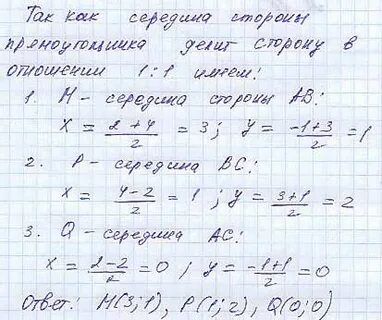 Так как середина стороны
прямоугольника делит сторону в
отношении 1:1 имеем:
1. М - середина стороны АВ:
x = (2+4)/2 = 3; y = (-1+3)/2 = 1
2. Р - середина ВС:
x = (4-2)/2 = 1; y = (3+1)/2 = 2
3. Q - середина АС:
x = (2-2)/2 = 0; y = (-1+1)/2 = 0
Ответ: М(3;1), Р(1;2), Q(0;0)